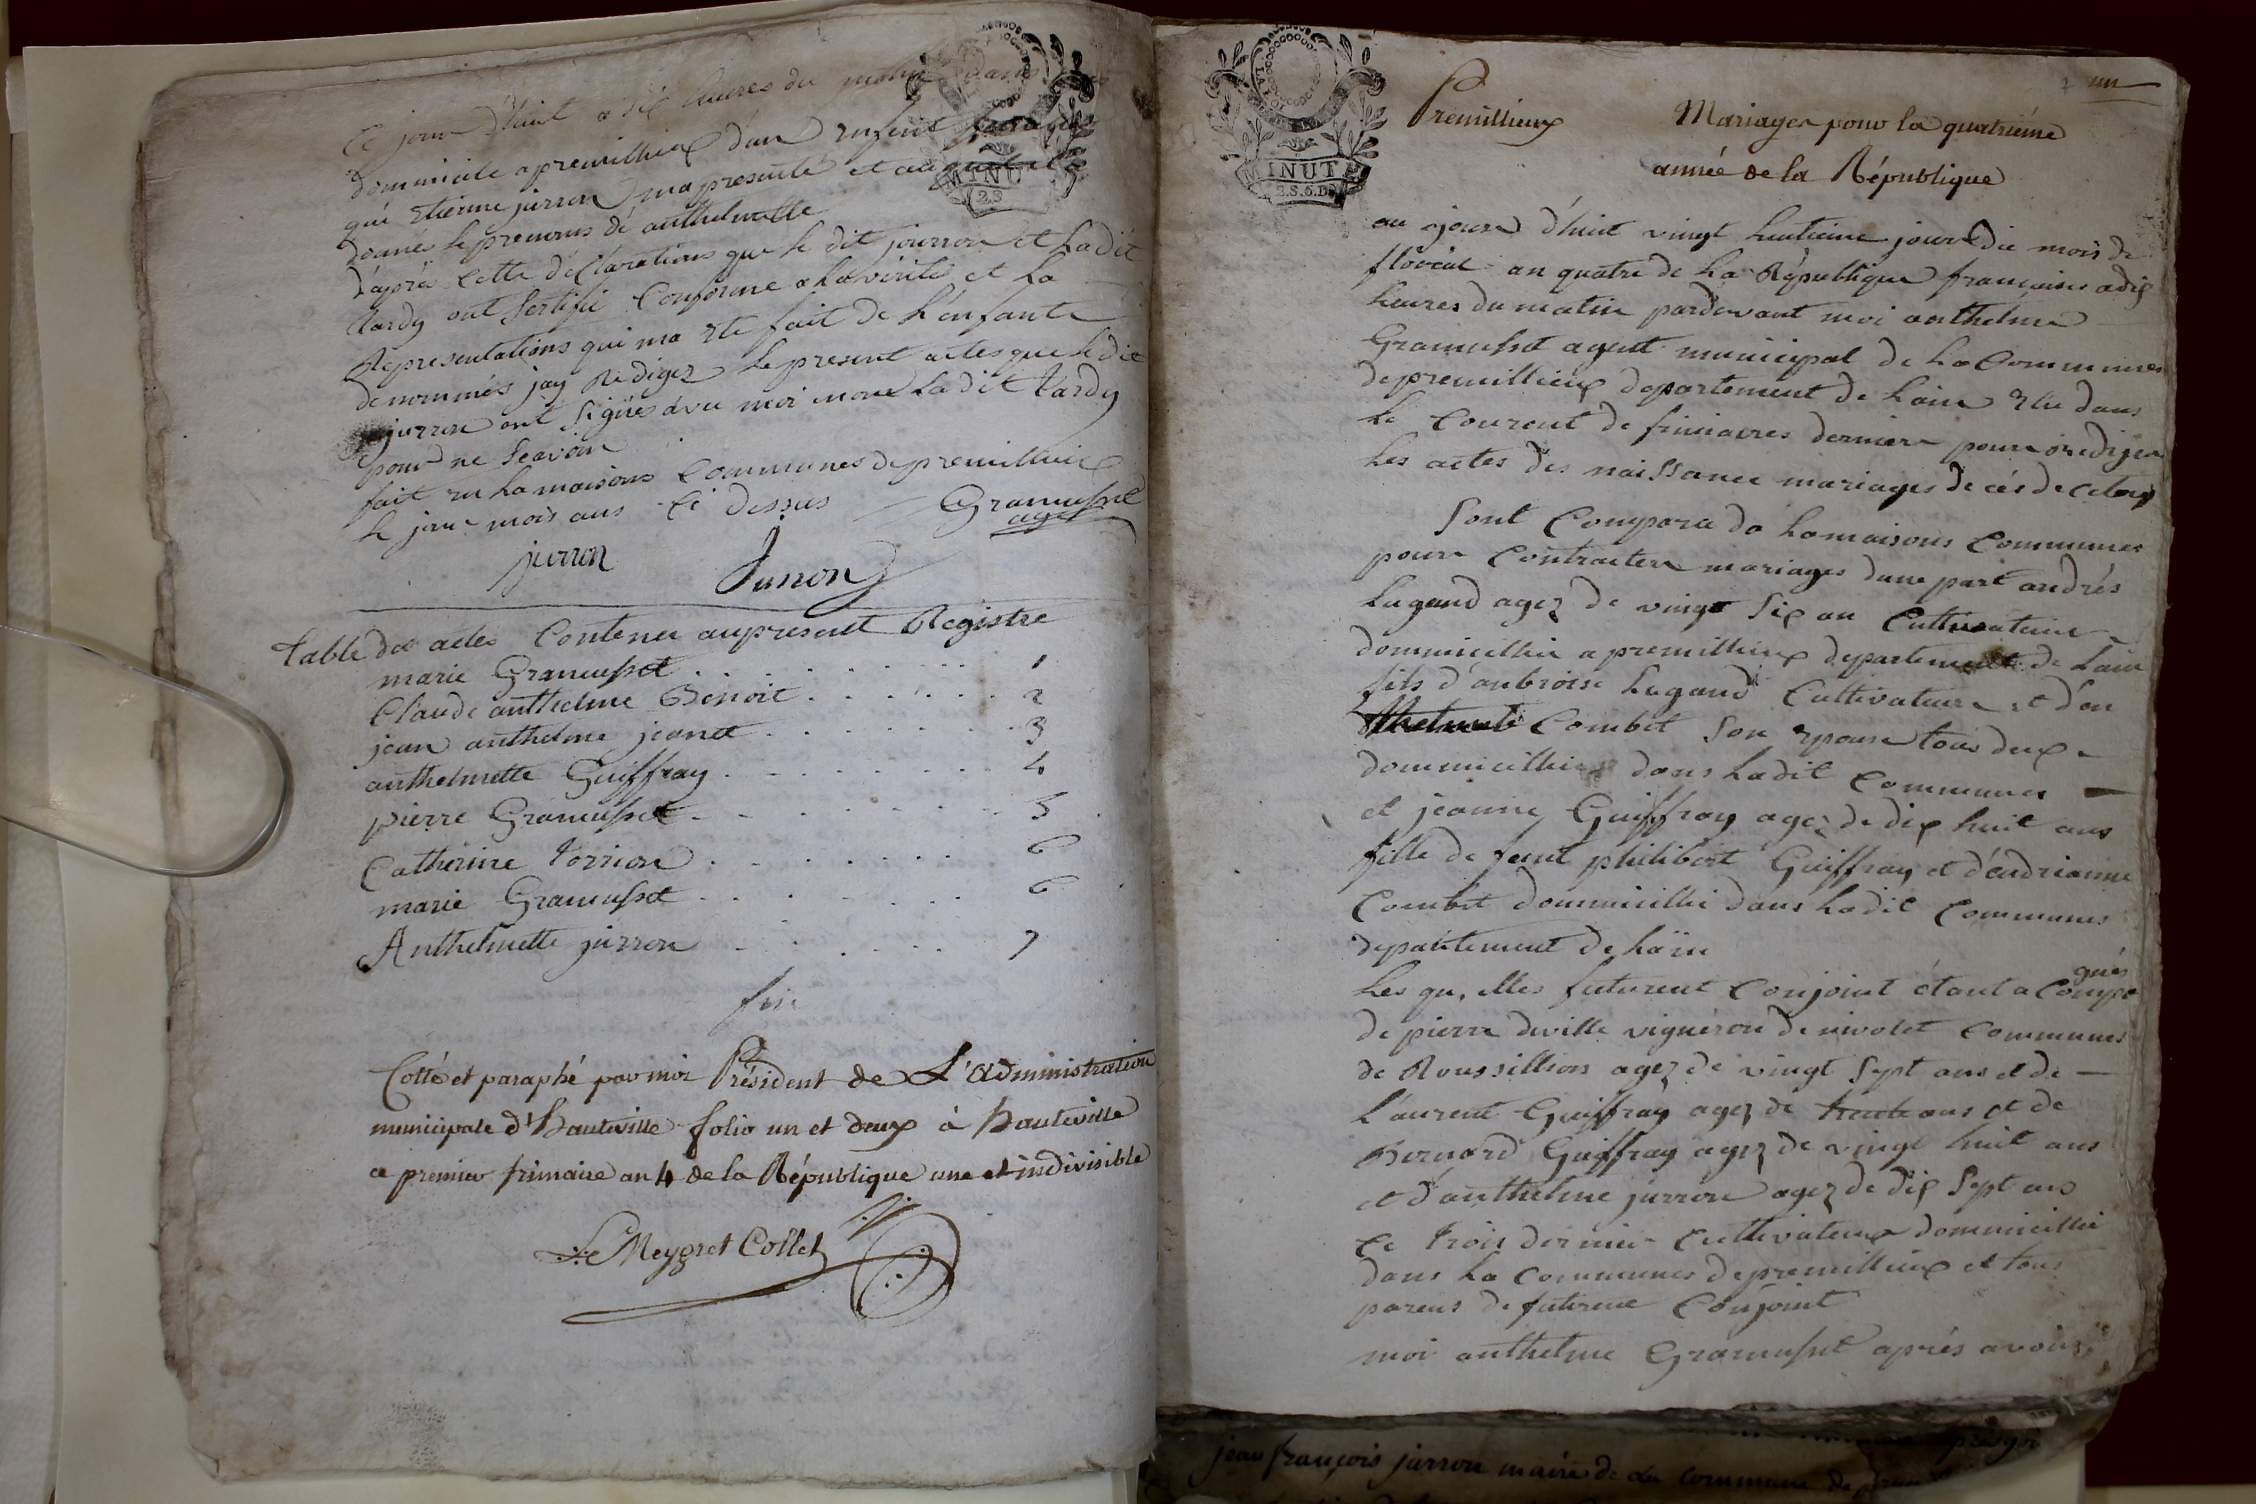 Ce jour d'huit a dix heures du matin dans
dommicile a premillieux d'un enfent
qué etienne jurron ma presenté et auquel
donné le prenoms dé anthelmette
d'aprés cette déclarations que le dit jourron et ladit
tardy ont sertifié conforme a la vérité et la
Representations qui ma ete fait de l'énfante
dénommés jay Rediger le present actes que le dit
jurron ont signé avec moi non ladit tardy
pour ne seavoir
fait en la maisons communes de premillieux
le jour mois ans ci dessus Gramusset
agt
jurron Jurron
table des actes contenu au present Registre
marie Gramusset 1
Claude anthelme Benoit 2
jean anthelme jeanet 3
anthelmette Guiffray 4
pierre Gramusset 5
Catherine torrion 6
marie Gramusset 6
Anthelmette jurron 7
fin
Cotté et paraphé par moi Président de L'administration
municipale d'hauteville folio un et deux à hauteville
ce premier frimaire an 4 de la République une et indivisible
Meygret Collet
MINUTE
2.S.6.D
un
Premillieux Mariages pour la quatriéme
année de la République
au ajourd d'huit vingt huitieme jour du mois de
floréal an quatre de la République française a dix
heures du matin pardevant moi anthelme
Gramusset agent municipal de la Communes
de premillieux departement de lain elu dans
le courent de frimaires dernier pour redijer
les actes des naissance mariages décés de citoy
sont compara da lamaisons communes
pour contracter mariages dune part andrés
Lugand agez de vingt six an Cultivateur
dommicillié a premillieux departement de lain
fils d'anbroise Lugand Cultivateur et d'an
thelmete Combet son epouse tous deux
dommicilliés dans ladit communes
et jeanne Guiffray agez de dix huit ans
fille de feut philibert Guiffray et d'éndrianne
Combet dommicillié dans ladit communes
departement de laïn
les qu, elles futurent conjoint étant a compa
gnés
de pierre deville vignéron de nivolet communes
de Roussillion agez de vingt sept ans et de
Laurent Guiffray agez de trente ans et de
Bernard Guiffray agez de vingt huit ans
et d'anthelme jurron agez de dix sept ans
ce trois dernier cultivateur dommicillié
dans la communes de premillieux et tous
parens de futurent conjoint
moi anthelme Gramusset aprés avoir
jean françois jurron maire de la commune de